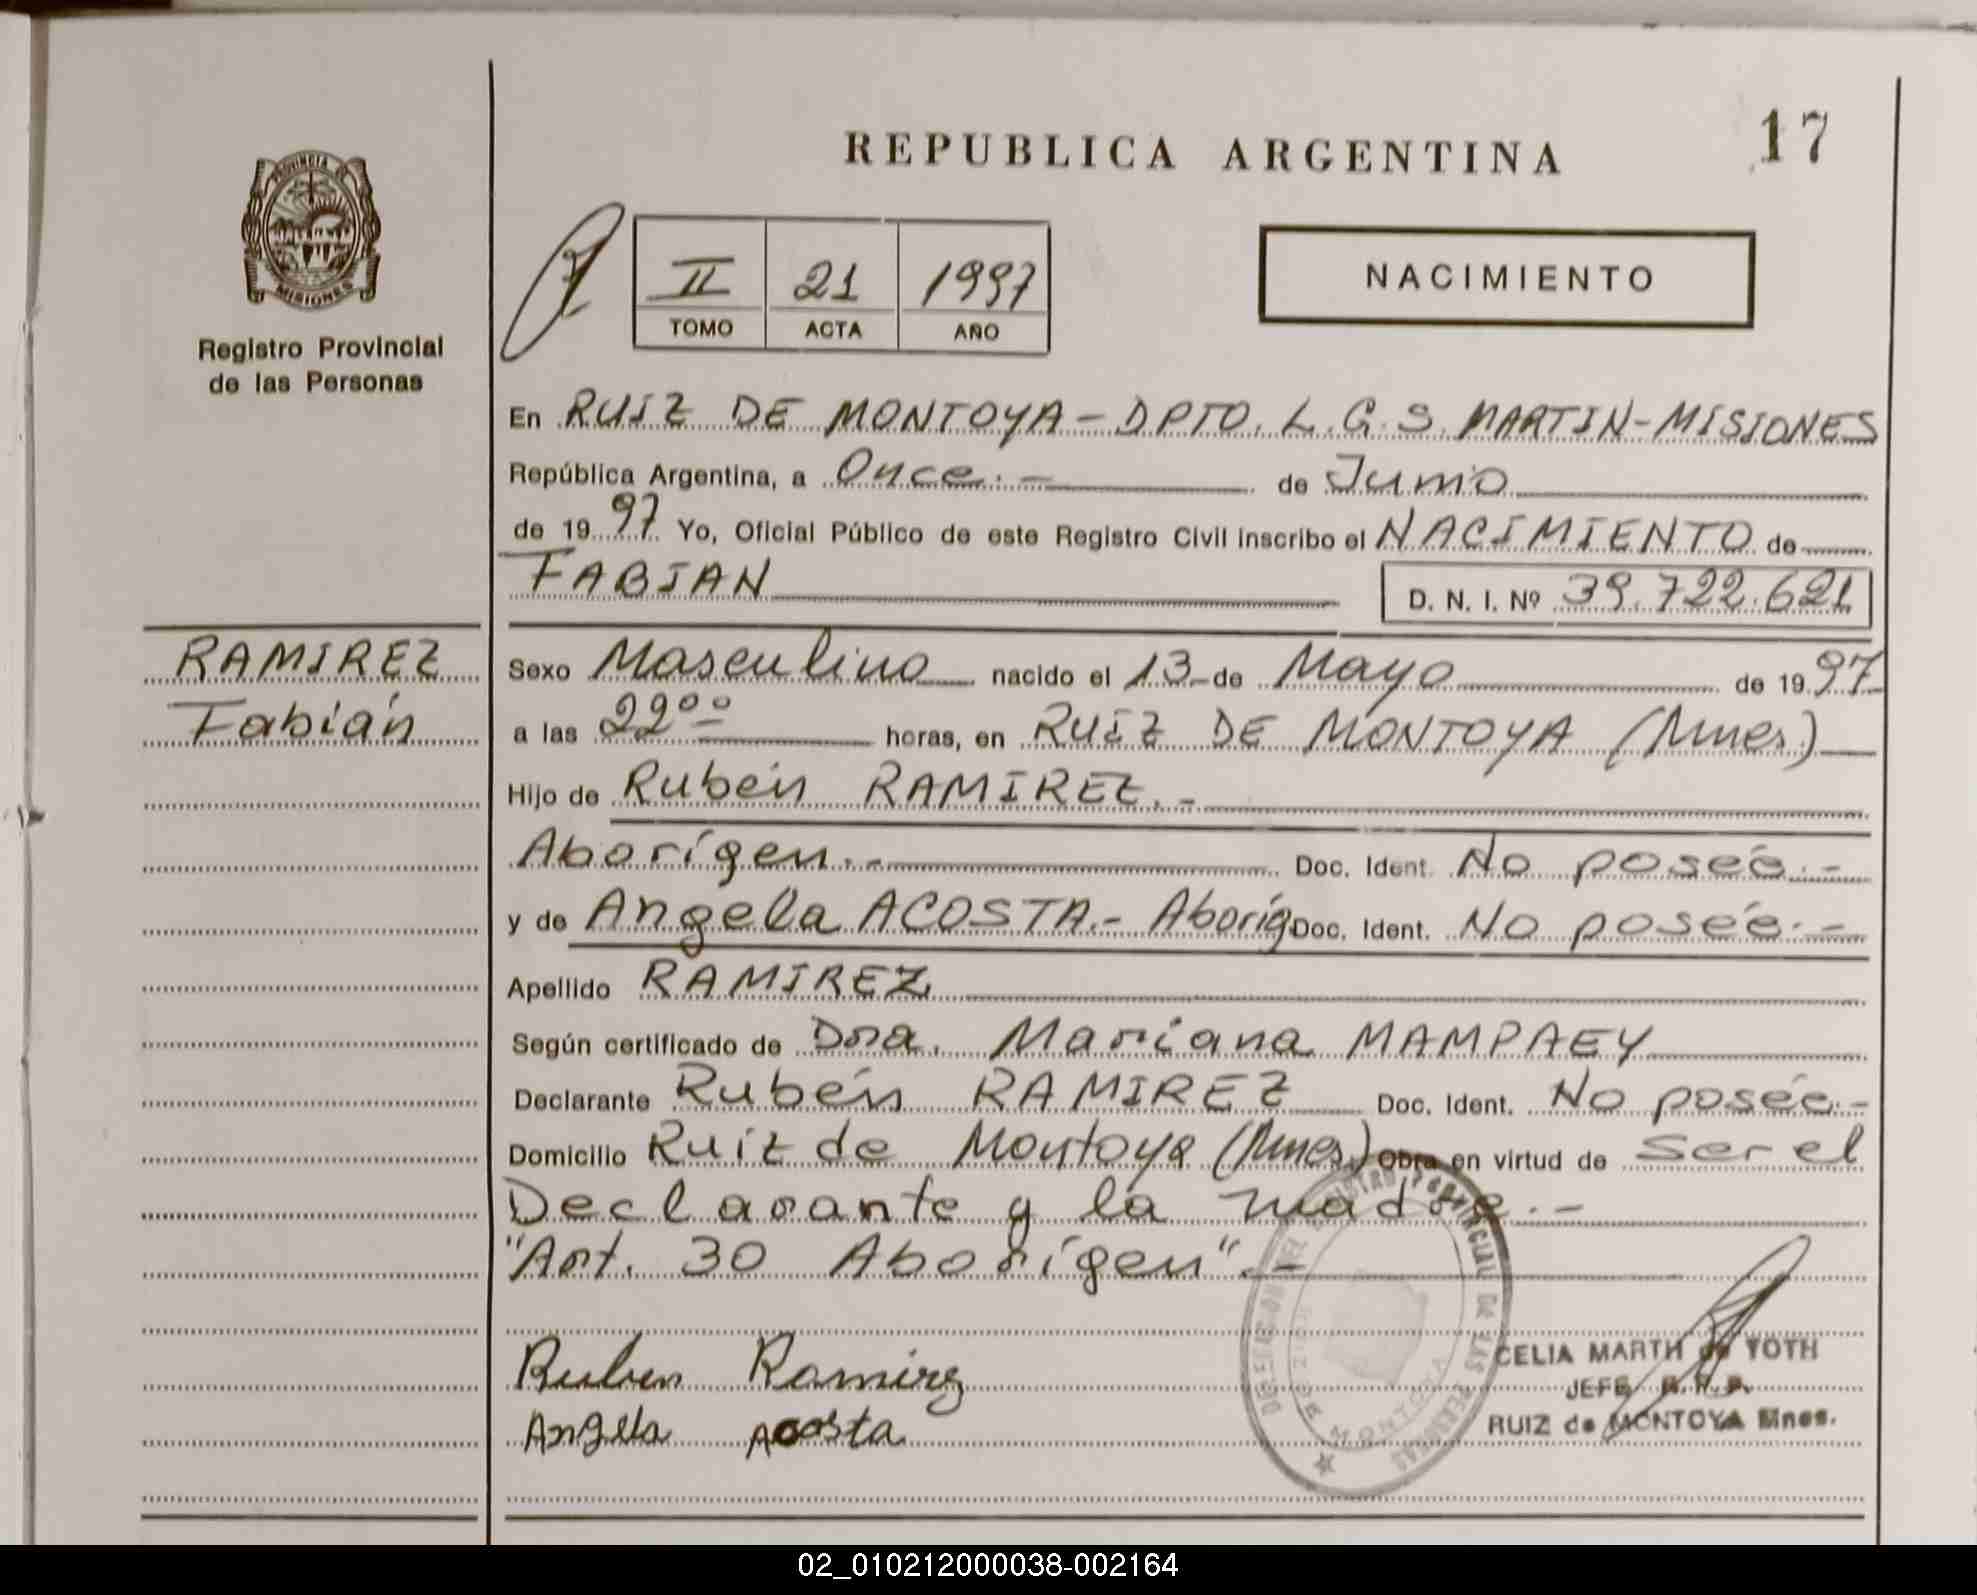 PROVINCIA DE
MISIONES
Registro Provincial
de las Personas
RAMIREZ
Fabián
REPUBLICA ARGENTINA
17
II 21 1997
TOMO ACTA AÑO
NACIMIENTO
En RUIZ DE MONTOYA - DPTO. L. G. S. MARTIN - MISIONES
República Argentina, a Once.- de Junio
de 1997 Yo, Oficial Público de este Registro Civil inscribo el NACIMIENTO de
FABIAN D. N. I. Nº 39.722.621
Sexo Masculino nacido el 13 de Mayo de 1997
a las 22°° horas, en RUIZ DE MONTOYA (Mnes)
Hijo de Rubén RAMIREZ.-
Aborígen.- Doc. Ident. No posée.-
y de Angela ACOSTA.- Aboríg Doc. Ident. No posée.-
Apellido RAMIREZ
Según certificado de Dra. Mariana MAMPAEY
Declarante Rubén RAMIREZ Doc. Ident. No posée-
Domicilio Ruiz de Montoya (Mnes) Obra en virtud de ser el
Declarante y la madre.-
"Art. 30 Aborígen".-
Ruben Ramirez
Angela Acosta
REGISTRO PROVINCIAL DE LAS PERSONAS
MONTOYA
CELIA MARTH de TOTH
JEFE R.P.P.
RUIZ de MONTOYA Mnes.
02_010212000038-002164